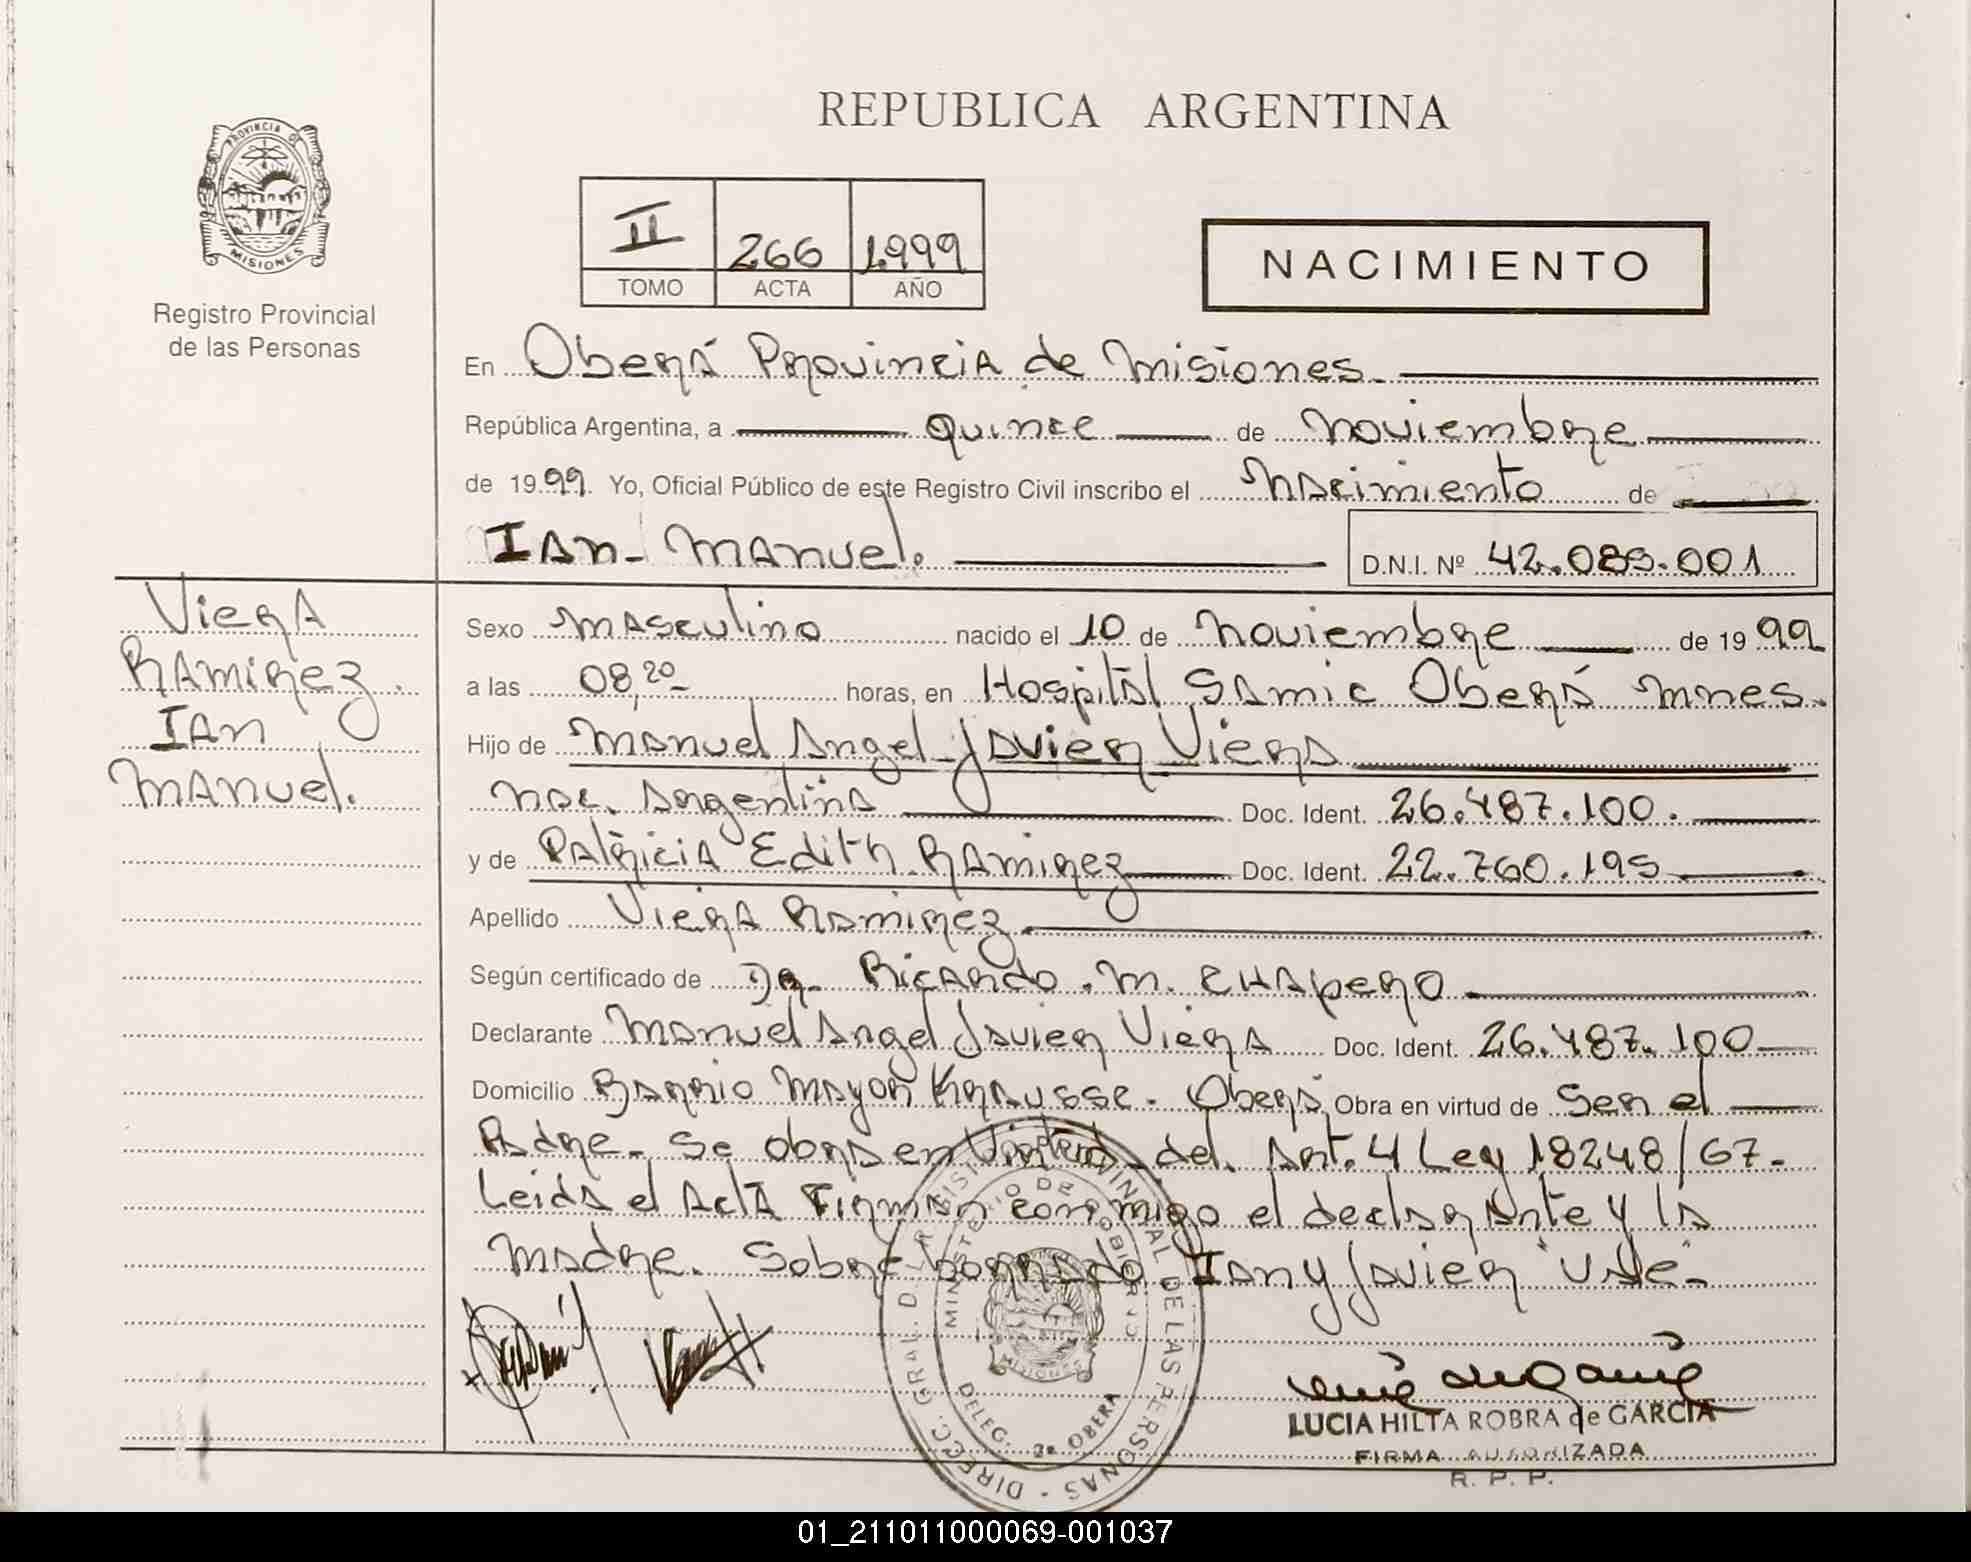 PROVINCIA DE
MISIONES
Registro Provincial
de las Personas
REPUBLICA ARGENTINA
II 266 1.999
TOMO ACTA AÑO
NACIMIENTO
En Oberá Provincia de Misiones.
República Argentina, a quince de noviembre
de 1999. Yo, Oficial Público de este Registro Civil inscribo el Nacimiento de
IAn- MANuel.
D.N.I. Nº 42.089.001
Viera
RAMirez
IAn
MANuel.
Sexo MAsculino nacido el 10 de Noviembre de 1999
a las 08,20- horas, en Hospital SAmic Oberá mnes.
Hijo de Manuel Angel Javier Viera
nac. Argentina Doc. Ident. 26.487.100.
y de PAtricia Edith RAmirez Doc. Ident. 22.760.195
Apellido Viera Ramirez
Según certificado de Dr. Ricardo .M. CHApero
Declarante Manuel Angel Javier Viera Doc. Ident. 26.487.100
Domicilio Barrio Mayor Krausse. Oberá, Obra en virtud de Ser el
Padre. Se obra en Virtud del Art. 4 Ley 18248/67.
Leida el Acta Firman conmigo el declarante y la
Madre. Sobre borrado Ian y Javier "Vale"
DIRECC. GRAL. D. L. REGISTRO PROVINCIAL DE LAS PERSONAS
MINISTERIO DE GOBIERNO
MISIONES
DELEG. 2a OBERA
LUCIA HILTA ROBRA de GARCIA
FIRMA AUTORIZADA
R. P. P.
01_211011000069-001037